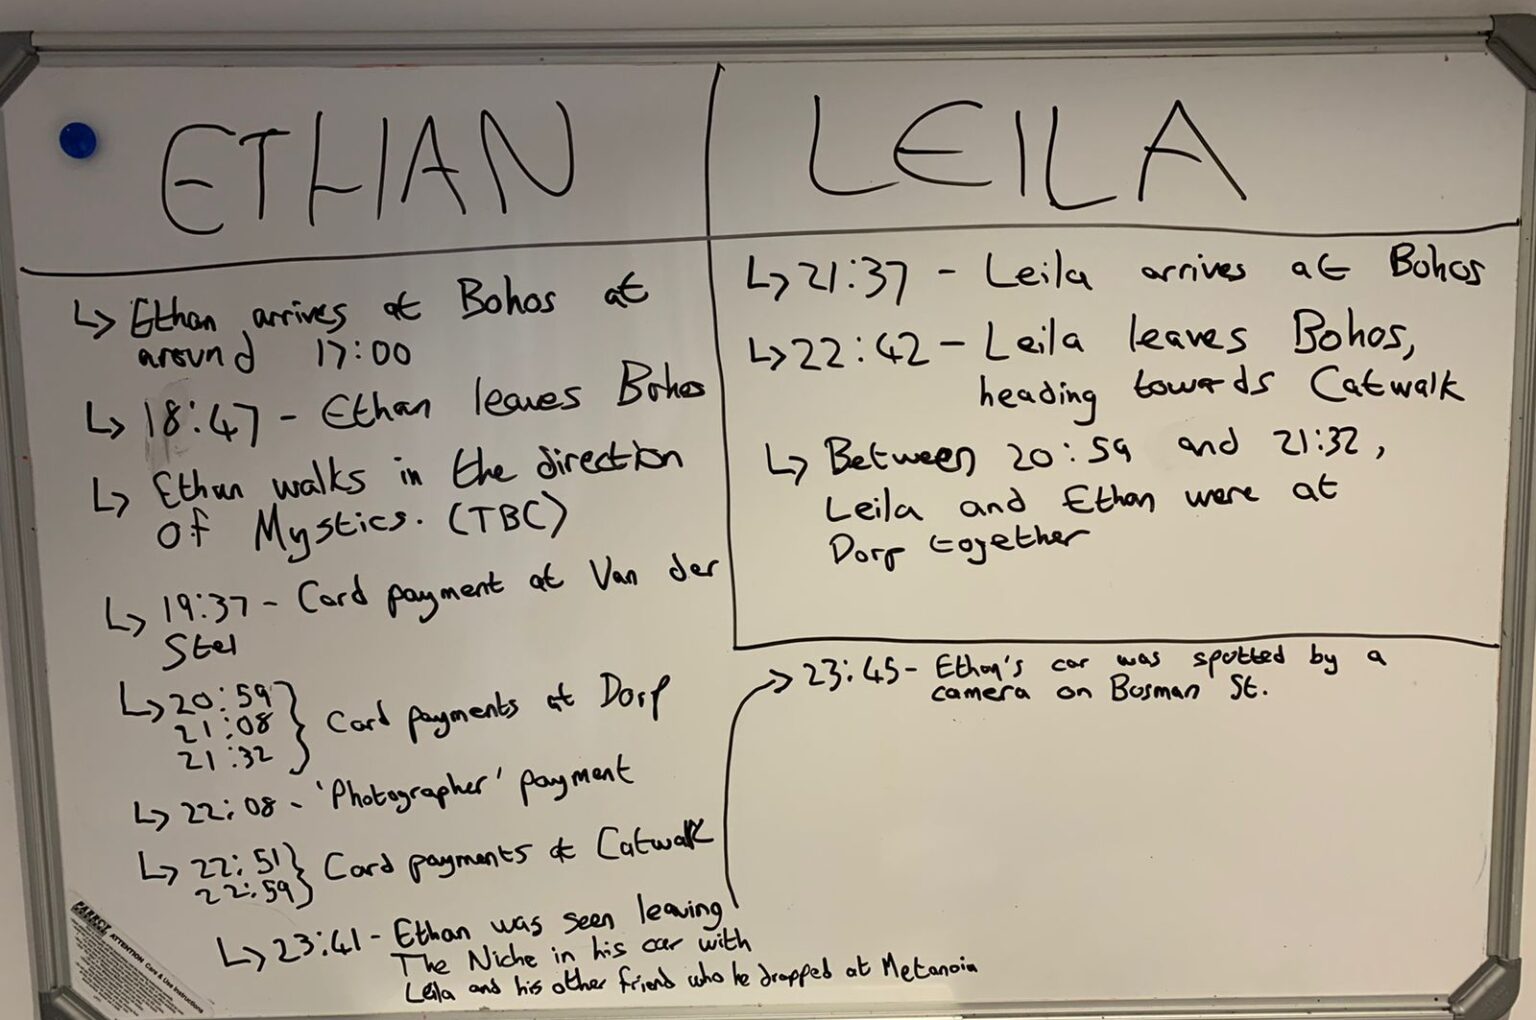 ETHAN
↳ Ethan arrives at Bohos at
around 17:00
↳ 18:47 - Ethan leaves Bohos
↳ Ethan walks in the direction
of Mystics. (TBC)
↳ 19:37 - Card payment at Van der
Stel
↳ 20:59
21:08
21:32
} Card payments at Dorp
↳ 22:08 - 'Photographer' payment
↳ 22:51
22:59
} Card payments at Catwalk
↳ 23:41 - Ethan was seen leaving
The Niche in his car with
Leila and his other friend who he dropped at Metanoia
LEILA
↳ 21:37 - Leila arrives at Bohos
↳ 22:42 - Leila leaves Bohos,
heading towards Catwalk
↳ Between 20:59 and 21:32,
Leila and Ethan were at
Dorp together
→ 23:45 - Ethan's car was spotted by a
camera on Bosman St.
PARROT
ATTENTION Care & Use Instructions